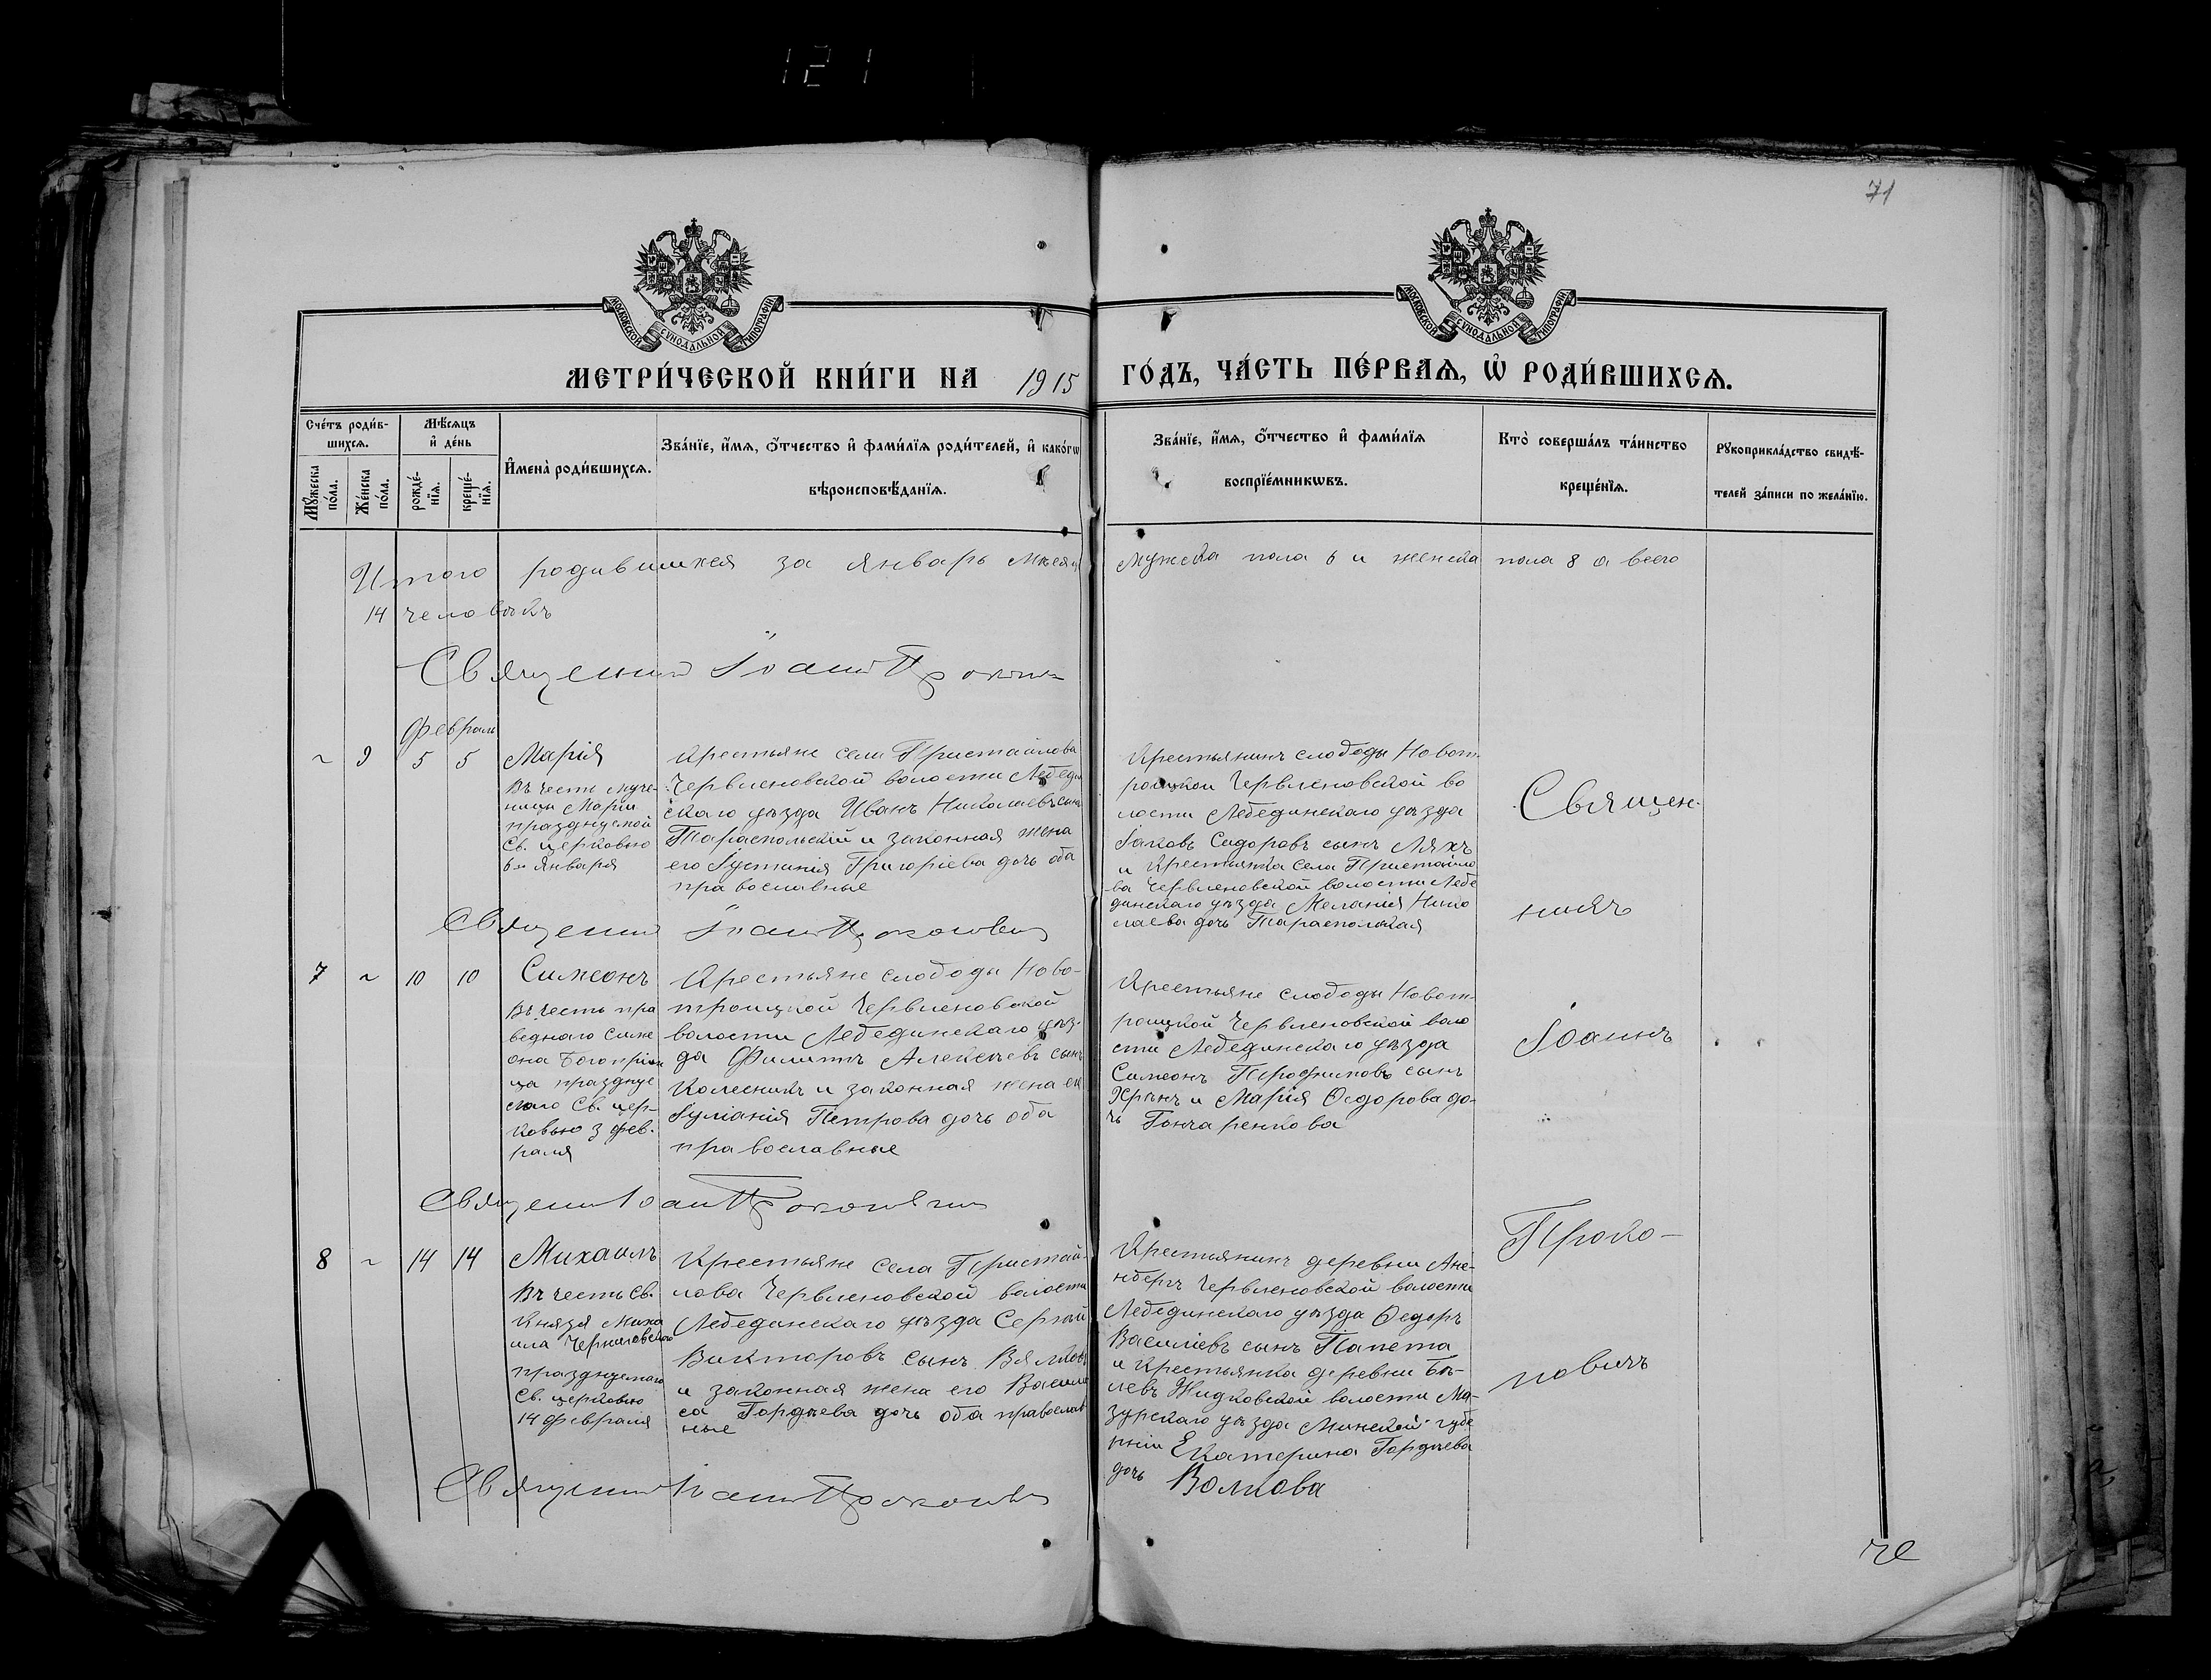 121
71
МОСКОВСКОЙ СѴНОДАЛЬНОЙ ТИПОГРАФІИ
МОСКОВСКОЙ СѴНОДАЛЬНОЙ ТИПОГРАФІИ
МЕТРИ́ЧЕСКОЙ КНИ́ГИ НА 1915 ГО́ДЪ, ЧА́СТЬ ПЕ́РВАѦ, Ѡ҆ РОДИ́ВШИХСѦ.
Сче́тъ роди́в-
шихсѧ.
Мꙋ́жеска по́ла.
Же́нска по́ла.
Мѣ́сѧцъ
и҆ де́нь
рожде́-
нїѧ.
креще́-
нїѧ.
И҆мена̀ роди́вшихсѧ.
Зва́нїе, и҆́мѧ, ѻ҆́тчество и҆ фами́лїѧ роди́телей, и҆ како́гѡ
вѣроисповѣ́данїѧ.
Зва́нїе, и҆́мѧ, ѻ҆́тчество и҆ фами́лїѧ
воспрїе́мникѡвъ.
Кто̀ соверша́лъ та́инство
креще́нїѧ.
Рꙋкоприкла́дство свидѣ́-
телей за́писи по жела́нїю.
Итого родившихся за Январь мѣсяц мужеска пола 6 и женска пола 8 а всего
14 человѣкъ
Священник Іоанн Прокопович
Февраль
~ 9 5 5
Марія
Въ честь муче-
ницы Маріи
празднуемой
Св. церковью
6-го Января
Крестьяне села Пристайлова
Червленовской волости Лебедин
скаго уѣзда Иванъ Николаевъ сынъ
Тараспольскій и законная жена
его Іустинія Григоріева дочь оба
православные
Крестьянинъ слободы Новот-
роицкой Червленовской во
лости Лебединскаго уѣзда
Іаковъ Сидоровъ сынъ Ляхъ
и Крестьянка села Пристайло
ва Червленовской волости Лебе
динскаго уѣзда Меланія Нико
лаева дочь Тараспольская
Священ-
никъ
Священник Іоанн Прокопович
7 ~ 10 10
Симеонъ
Въ честь пра
веднаго Симе
она Богопріим
ца празднуе
маго Св. цер-
ковью 3 фев-
раля
Крестьяне слободы Ново-
троицкой Червленовской
волости Лебединскаго уѣз-
да Филиппъ Алексѣевъ сынъ
Колесникъ и законная жена его
Іуліанія Петрова дочь оба
православные
Крестьяне слободы Новот-
роицкой Червленовской воло
сти Лебединскаго уѣзда
Симеонъ Трофимовъ сынъ
Хрѣнъ и Марія Ѳедорова до-
чь Гончаренкова
Іоаннъ
Священник Іоанн Прокопович
8 ~ 14 14
Михаилъ
Въ честь Св.
Князя Миха
ила Черниговскаго
празднуемаго
Св. церковью
14 февраля
Крестьяне села Пристай-
лова Червленовской волости
Лебединскаго уѣзда Сергѣй
Викторовъ сынъ
и законная жена его Васили
са Гордѣева дочь оба православ
ные
Крестьянинъ деревни
Червленовской волости
Лебединскаго уѣзда Ѳедоръ
Василіевъ сынъ Папета
и Крестьянка деревни Бѣ-
левъ Жидковской волости Мо-
зурскаго уѣзда Минской губе
рніи Екатерина Гордѣева
дочь Волкова
Проко-
повичъ
Священник Іоанн Прокопович
че